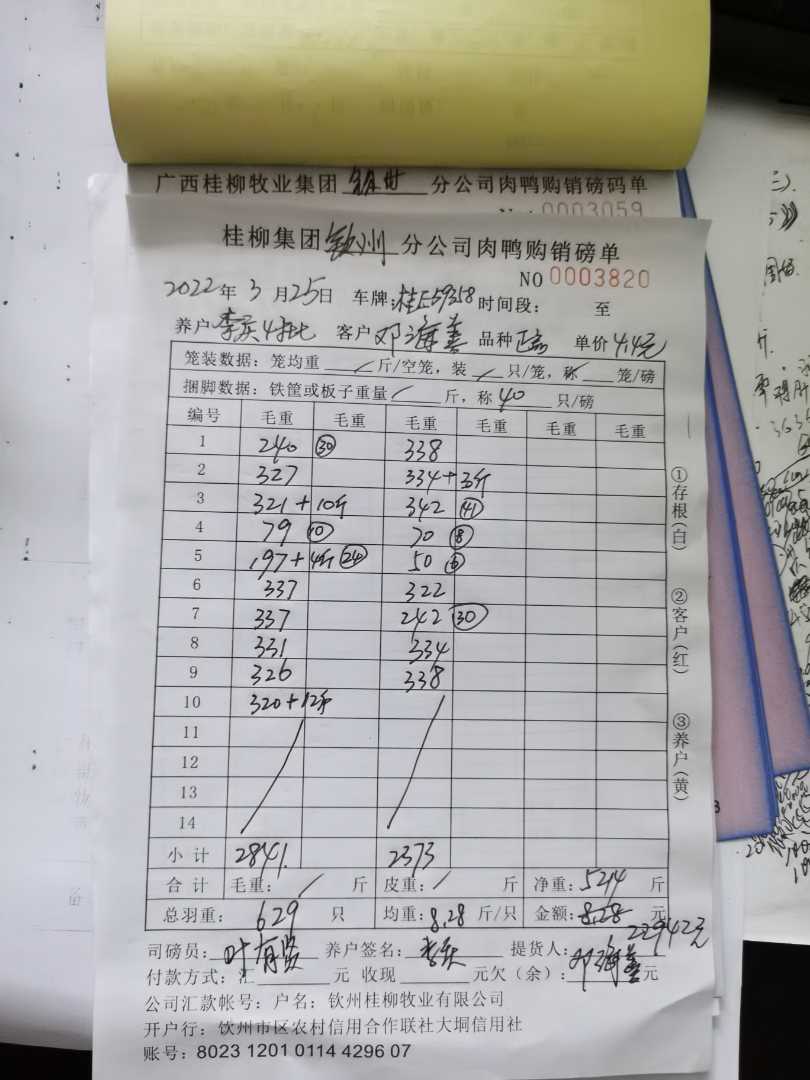 广西桂柳牧业集团 钦州 分公司肉鸭购销磅码单
0003059
桂柳集团 钦州 分公司肉鸭购销磅单
NO 0003820
2022年 3月25日 车牌:桂E59358 时间段: 至
养户 客户 邓海善 品种 单价 4.4元
笼装数据:笼均重 / 斤/空笼,装 / 只/笼,称 笼/磅
捆脚数据:铁筐或板子重量 / 斤,称 40 只/磅
编号 毛重 毛重 毛重 毛重 毛重 毛重
1 240 ㉚ 338
2 327 334+3斤
3 321+10斤 342 ㊶
4 79 ⑩ 70 ⑧
5 197+4斤 ㉔ 50 ⑥
6 337 322
7 337 242 ㉚
8 331 334
9 326 338
10 320+12斤
11
12
13
14
小计 2841 2373
合计 毛重: / 斤 皮重: / 斤 净重: 5214 斤
总羽重: 629 只 均重: 8.28 斤/只 金额: 8.28 元
22942元
司磅员: 叶有贤 养户签名: 提货人: 邓海善
付款方式:汇 元 收现 元欠(余): 元
公司汇款帐号:户名:钦州桂柳牧业有限公司
开户行:饮州市区农村信用合作联社大垌信用社
账号:8023 1201 0114 4296 07
①存根(白)
②客户(红)
③养户(黄)